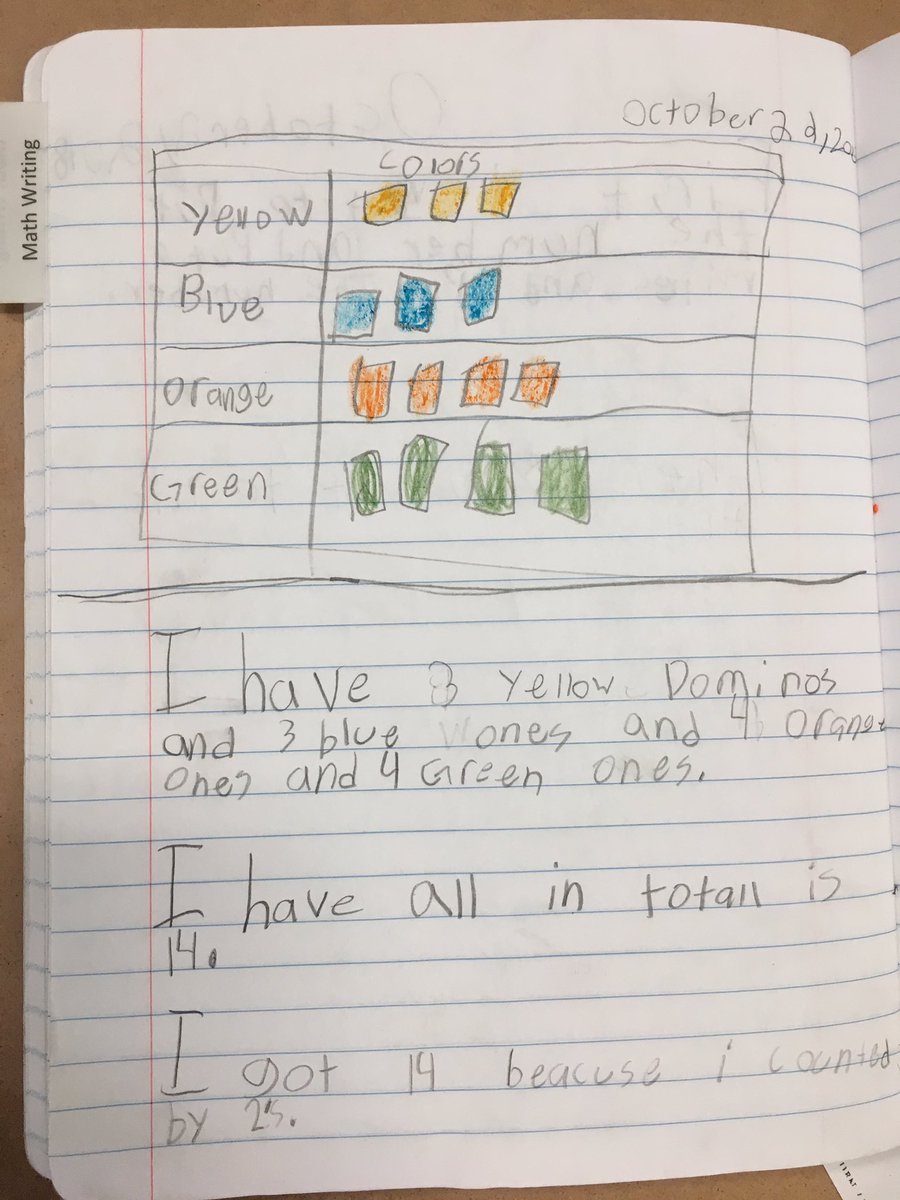 Math Writing
October 2d,20
Colors
Yellow
Blue
Orange
Green
I have 3 Yellow Dominos
and 3 blue ones and 4 Orange
Ones and 4 Green ones.
I have all in totall is
14.
I got 14 beacuse i counted
by 2's.